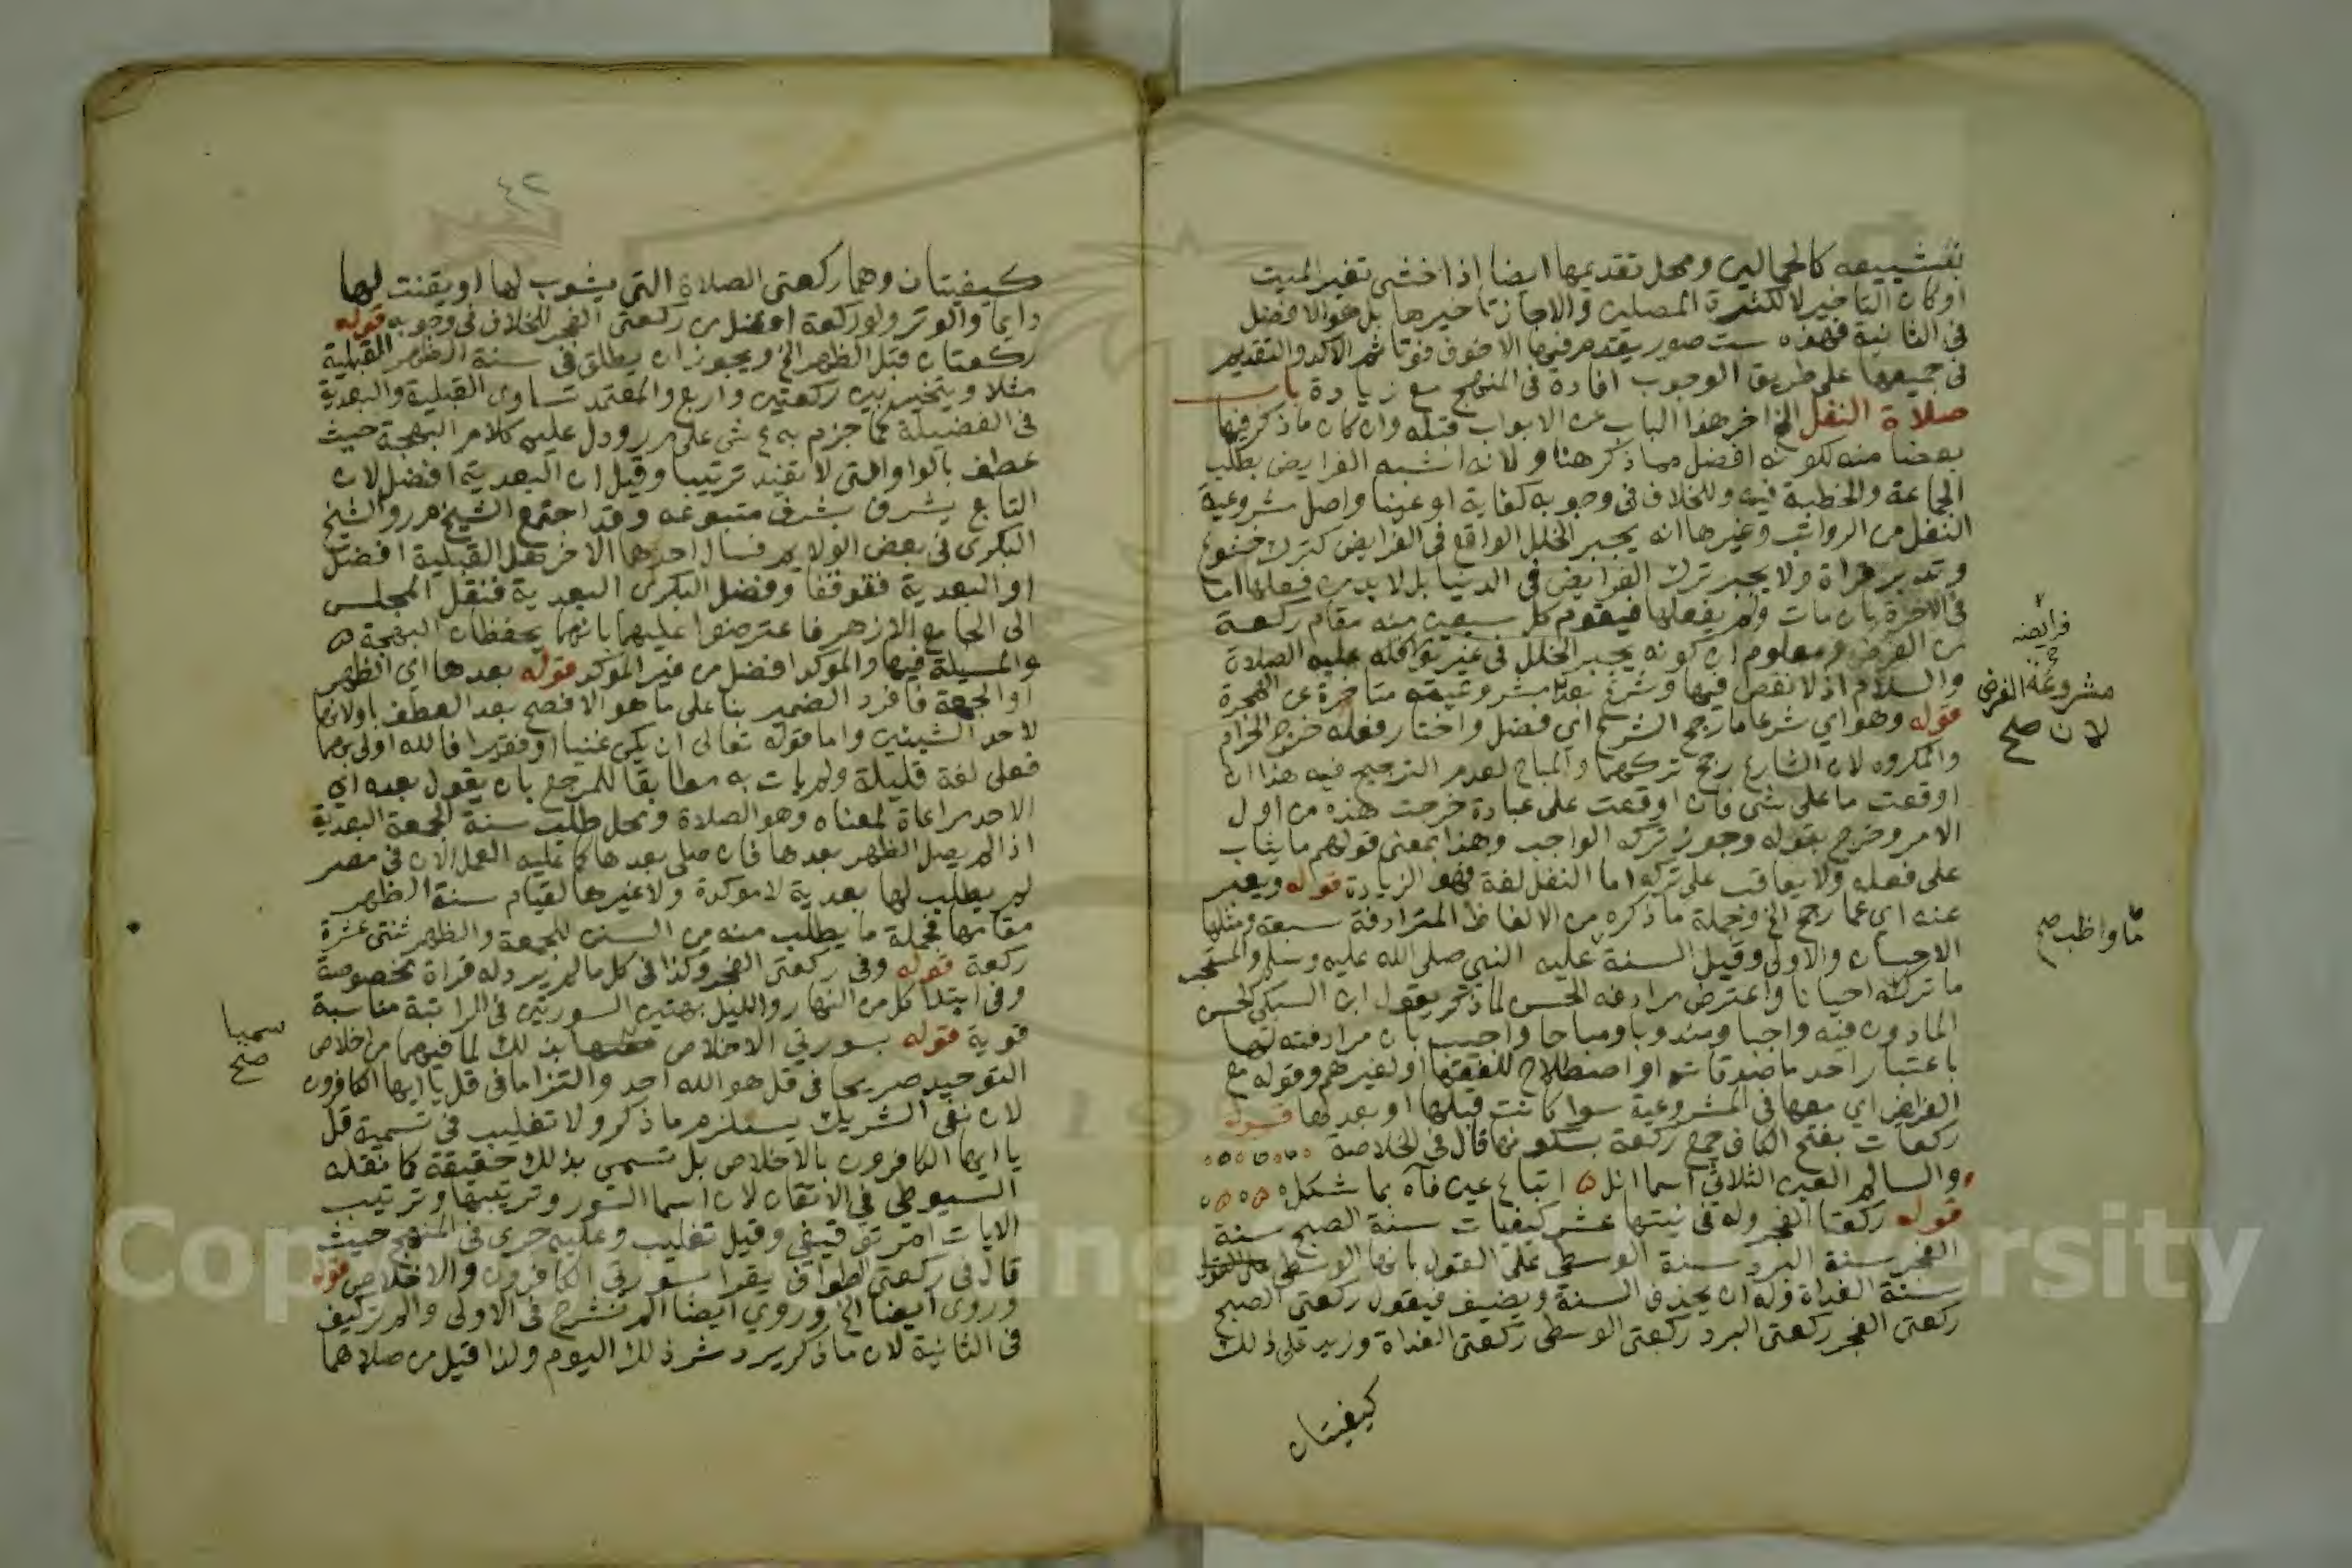 تفشييعه كالحمالين ومحل تقديمها ايضا اذا خشى تغير الميت
او كان التاخير لا لكثرة المصلين والاجاز تاخيرها بل هو الافضل
فى الثانية فهذه ست صور يقدم فيها الاخوف فوتا ثم الاكد والتقديم
فى جميعها على طريق الوجوب افاده فى المنهج مع زيادة باب
صلاة النفل الخ اخر هذا الباب عن الابواب قبله وان كان ما ذكر فيها
بعضا منه لكونه افضل مما ذكر هنا ولانه اشبه الفرايض بطلب
الجماعة والخطبة فيه وللخلاف فى وجوبه كفاية او عينا واصل مشروعية
النفل من الرواتب وغيرها انه يجبر الخلل الواقع فى الفرايض كترك خشوع
وتدبر قراة ولا يجبر ترك الفرايض فى الدنيا بل لا بد من فعلها اما
فى الاخرة بان مات ولم يفعلها فيقوم كل سبعين منه مقام ركعة
من الفرض ومعلوم ان كونه يجبر الخلل فى غير نوافله عليه الصلاة
والسلام اذ لا نقص فيها وشرع بعد مشروعيته متاخرة عن الهجرة
قوله وهو اي شرعا ما رجح الشرع اي فضل واختار فعله خرج الحرام
والمكروه لان الشارع رجح تركهما والمباح لعدم الترجيح فيه هذا ان
اوقعت ما على شى فان اوقعت على عبادة خرجت هذه من اول
الامر وخرج بقوله وجوز تركه الواجب وهذا بمعنى قولهم ما يثاب
على فعله ولا يعاقب على تركه اما النفل لغة فهو الزيادة قوله ويعبر
عنه اى عما رجح الخ وجملة ما ذكره من الالفاظ المترادفة سبعة ومثلها
الاحسان والاولى وقيل السنة عليه النبي صلى الله عليه وسلم والمستحب
ما تركه احيانا واعترض مرادفه الحسن لما ذكر بقول ابن السبكى الحسن
الماذون فيه واجبا ومندوبا ومباحا واجيب بان مرادفته لهما
باعتبار احد ماصدقاته او اصطلاح للفقها او لغيرهم وقوله مع
الفرايض اي معها فى المشروعية سوا كانت قبلها او بعدها قوله
ركعات بفتح الكاف جمع ركعة بسكونها قال فى الخلاصة
والسالم العين الثلاثى اسما انل اتباع عين فاءه بما شكل
قوله ركعتا الفجر وله فى نيتها عشر كيفيات سنة الصبح سنة
الفجر سنة البرد سنة الوسطى على القول بانها الوسطى
سنة الغداة وله ان يحذف السنة ويضيف فيقول ركعتى الصبح
ركعتى الفجر ركعتى البرد ركعتى الوسطى ركعتى الغداة وزيد على ذلك
كيفيتان
فرايضه
صح
مشروعية الفرض
لان صح
ما واظب صح
٤٢
كيفيتان وهما ركعتى الصلاة التى يثوب لها او يقنت لها
دايما والوتر ولو ركعة افضل من ركعتى الفجر للخلاف فى وجوبه قوله
ركعتان قبل الظهر الخ ويجوز ان يطلق فى سنة الظهر القبلية
مثلا ويتخير بين ركعتين واربع والمعتمد تساوى القبلية والبعدية
فى الفضيلة كما جزم به ع ش على م ر ودل عليه كلام البهجة حيث
عطف بالواو التى لا تفيد ترتيبا وقيل ان البعدية افضل لان
التابع يشرف بشرف متبوعه وقد اجتمع الشيخ م ر والشيخ
البكرى فى بعض الولايم فسال احدهما الاخر هل القبلية افضل
او البعدية فتوقفا وفضل البكرى البعدية فنقل المجلس
الى الجامع الازهر فاعترضوا عليهما بانهما يحفظان البهجة
والمسيلة فيها والموكد افضل من غير الموكد قوله بعدها اي الظهر
او الجمعة فافرد الضمير بنا على ما هو الافصح بعد العطف باو لانها
لاحد الشيئين واما قوله تعالى ان يكن غنيا او فقيرا فالله اولى بهما
فعلى لغة قليلة ولم يات به مطابقا للمرجع بان يقول بعده اي
الاحد مراعاة لمعناه وهو الصلاة ومحل طلب سنة الجمعة البعدية
اذا لم يصل الظهر بعدها فان صلى بعدها كما عليه العمل الان فى مصر
لم يطلب لها بعدية لا موكدة ولا غيرها لقيام سنة الظهر
مقامها فجملة ما يطلب منه من السنن للجمعة والظهر ثنتى عشرة
ركعة قوله وفى ركعتى الفجر وكذا فى كل ما لم يرد له قراة مخصوصة
وفى ابتدا كل من النهار والليل بهتين السورتين فى الراتبة مناسبة
قوية قوله بسورتي الاخلاص بذلك لما فيهما من اخلاص
التوحيد صريحا فى قل هو الله احد والتزاما فى قل يا ايها الكافرون
لان نفى الشريك يستلزم ما ذكر ولا تغليب فى تسمية قل
يا ايها الكافرون بالاخلاص بل تسمى بذلك حقيقة كما نقله
السيوطى فى الاتقان لان اسما السور وترتيبها وترتيب
الايات امر توقيفي وقيل تغليب وعليه جرى فى المنهج حيث
قال فى ركعتى الطواف يقرا سورتى الكافرون والاخلاص قوله
وروى ايضا الخ وروي ايضا الم نشرح فى الاولى والم تركيف
فى الثانية لان ما ذكر يرد شر ذلك اليوم ولذا قيل من صلاهما
سميا
صح
Copying University